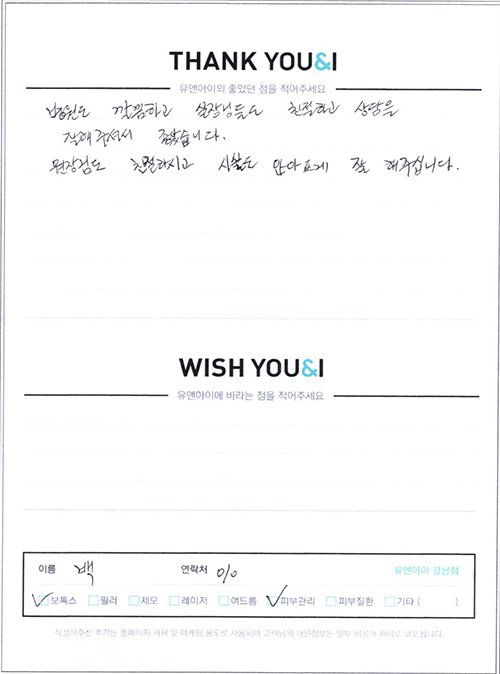 THANK YOU&I
유앤아이의 좋았던 점을 적어주세요
병원도 깔끔하고 실장님들도 친절하고 상담을
잘해주셔서 좋았습니다.
원장님도 친절하시고 시술도 안아프게 잘 해주십니다.
WISH YOU&I
유앤아이에 바라는 점을 적어주세요
이름 백 연락처 010 유앤아이 강남점
보톡스 필러 제모 레이저 여드름 피부관리 피부질환 기타 ( )
작성해주신 후기는 홈페이지 게재 및 마케팅 용도로 사용되며 고객님의 개인정보는 일부 비공개 처리로 보호됩니다.